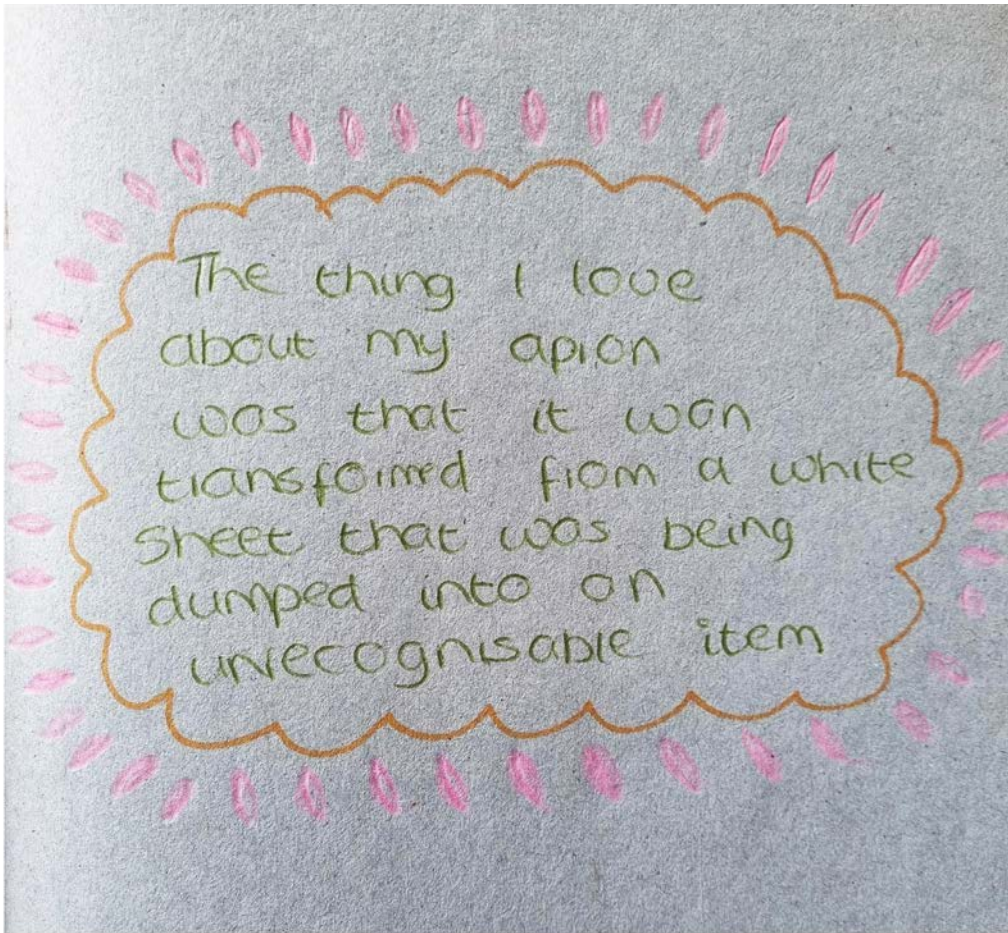 The thing I love
about my apron
was that it won
transformed from a white
sheet that was being
dumped into an
unrecognisable item